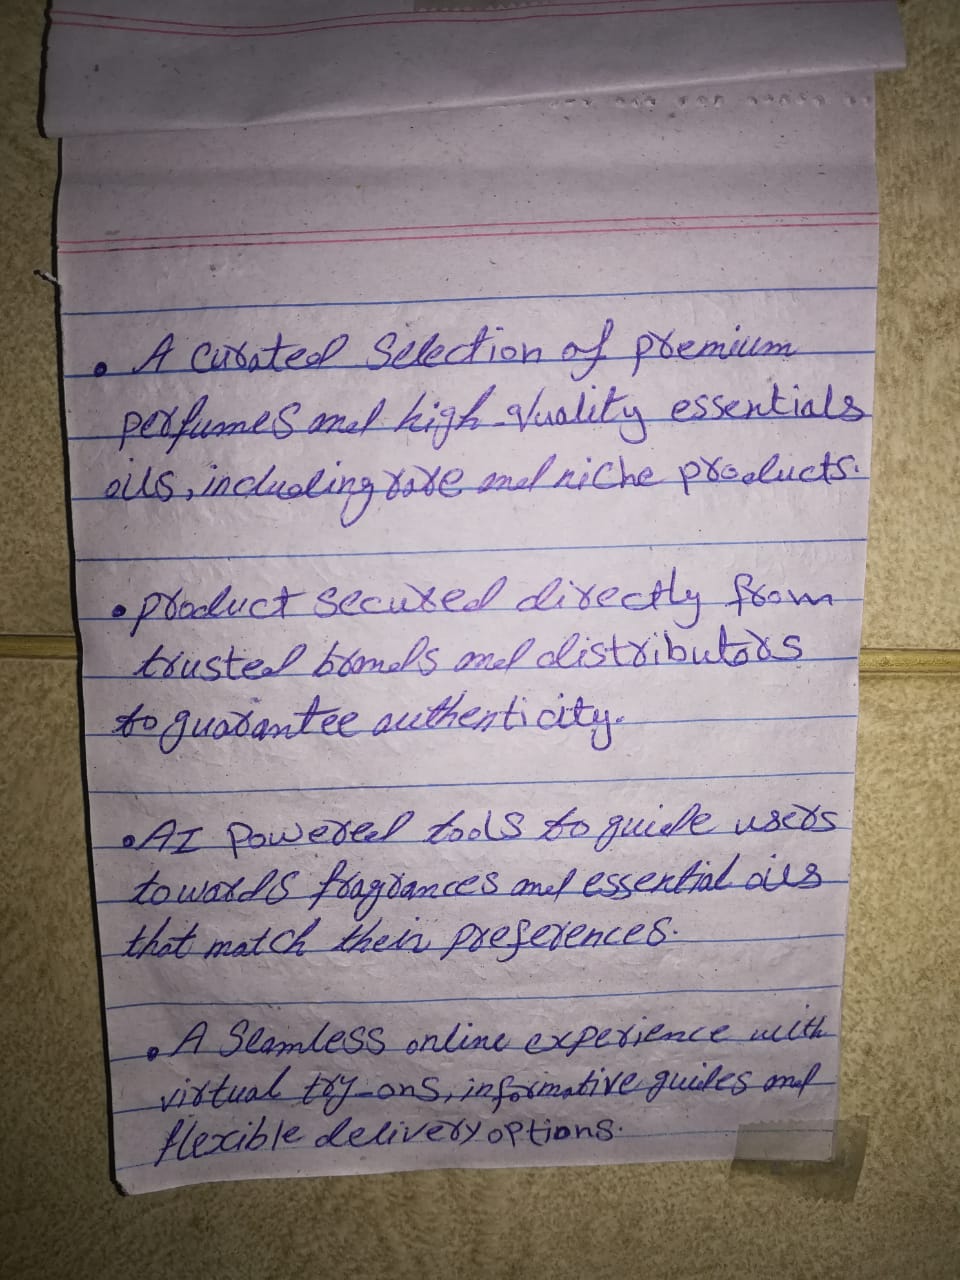 • A curated Selection of premium
perfumes and high-quality essentials
oils, including rare and niche products.
• product secured directly from
trusted brands and distributors
to guarantee authenticity.
• AI powered tools to guide users
towards fragrances and essential oils
that match their preferences.
• A Seamless online experience with
virtual try-ons, informative guides and
flexible delivery options.